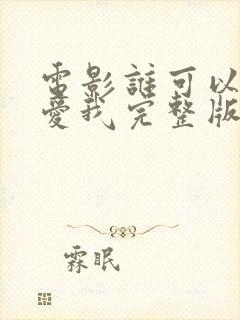 電影誰可以
愛我完整版
霖眠